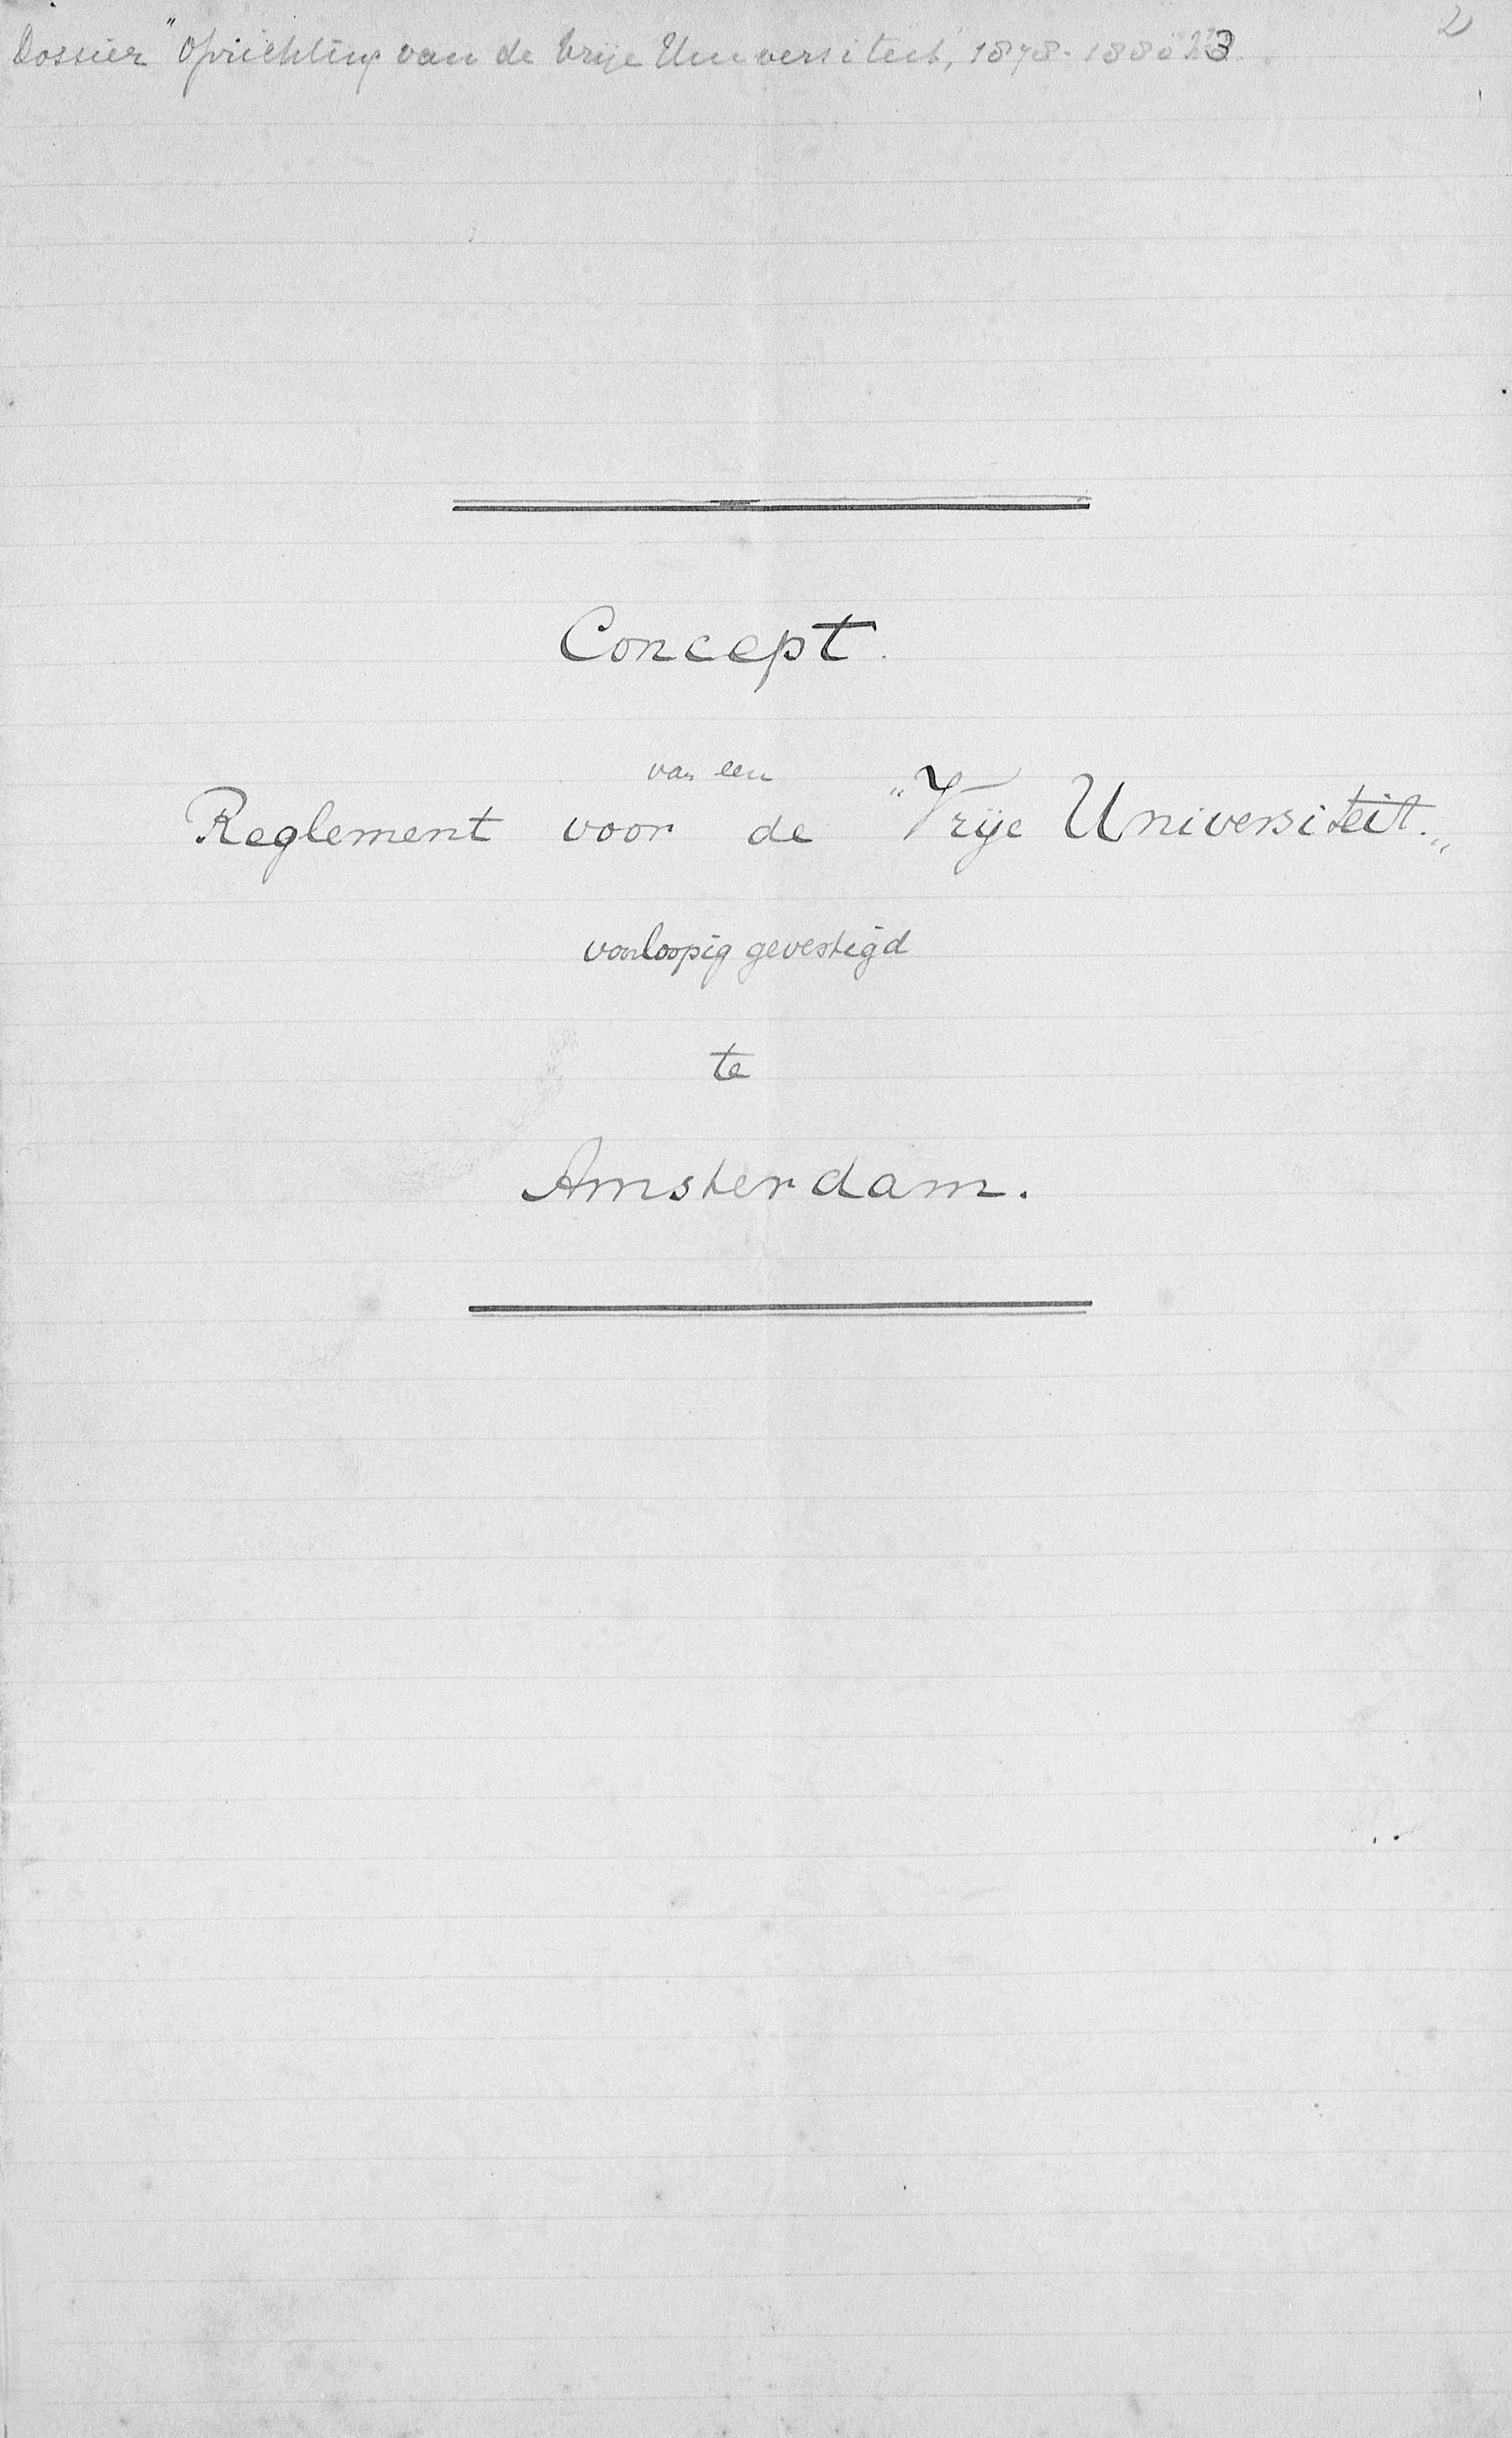 Dossier "Oprichting van de Vrije Universiteit, 1878-1880" 3
2
Concept.
van een
Reglement voor de "Vrije Universiteit."
voorloopig gevestigd
te
Amsterdam.